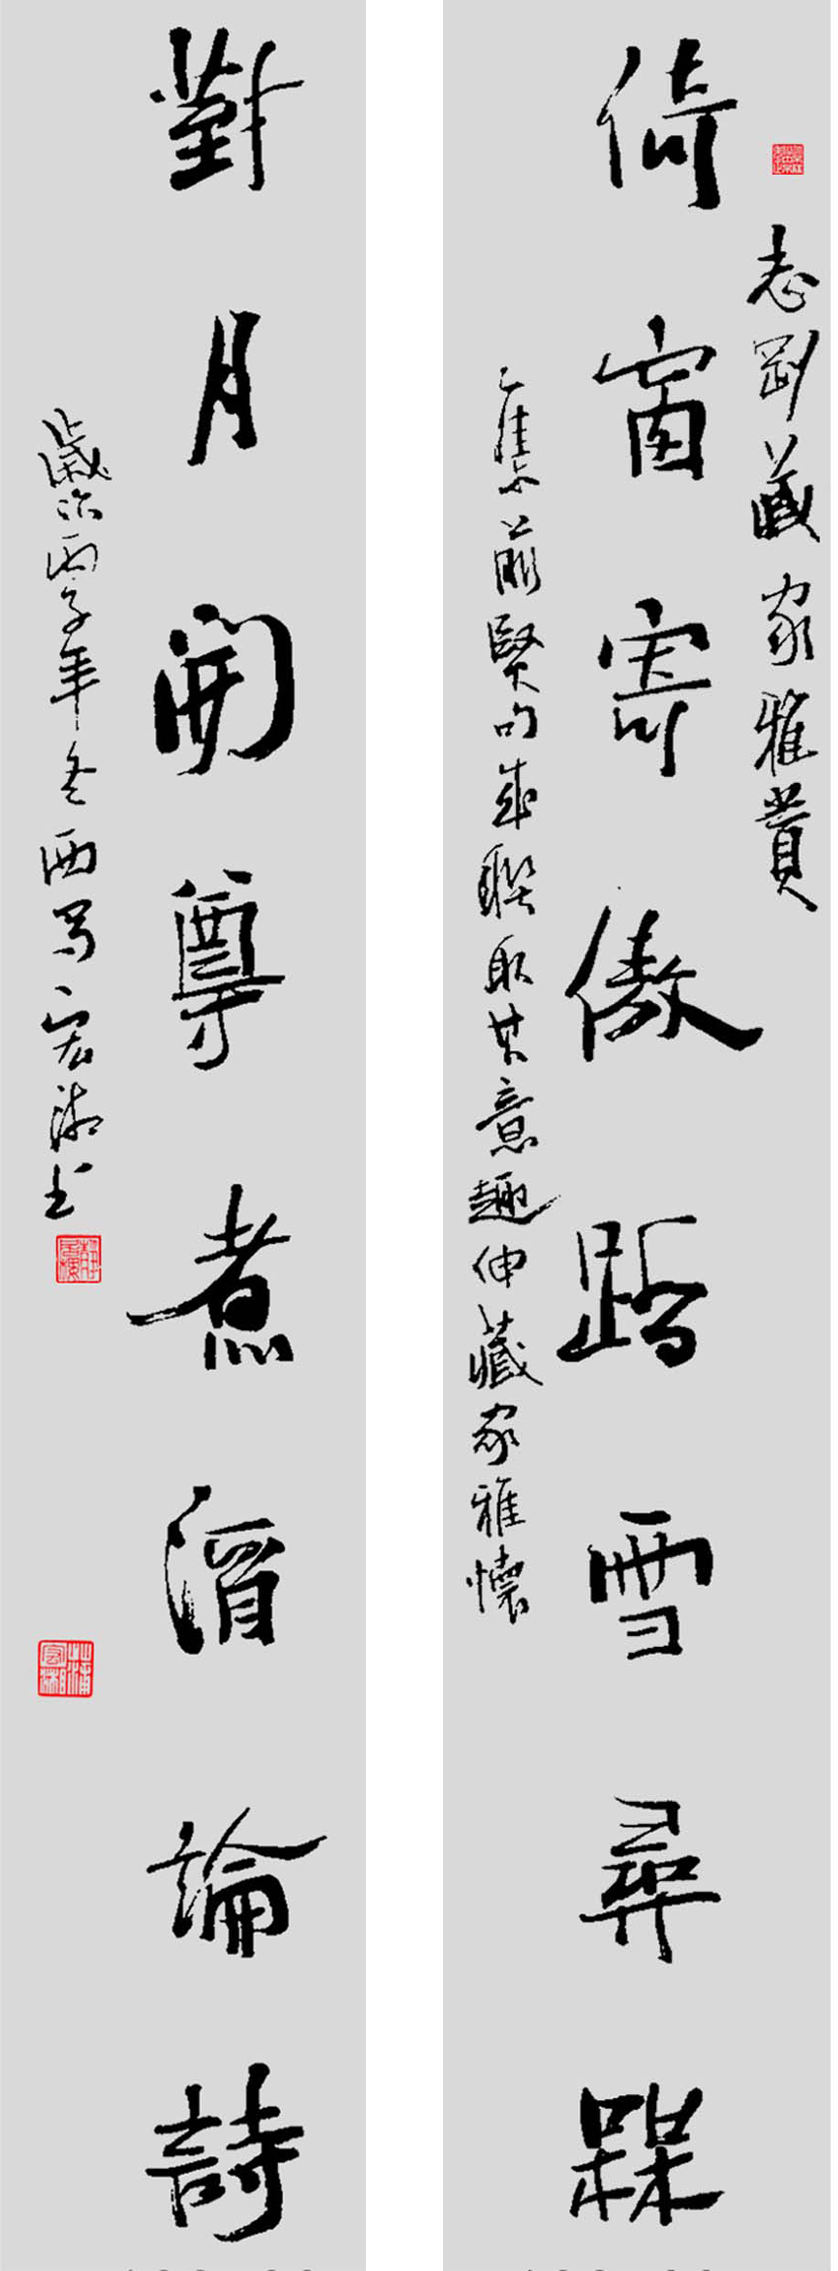 志剛藏家雅賞
倚窗寄傲踏雪尋槑
集前賢句成聯取其意趣伸藏家雅懷
對月開尊煮酒論詩
歲次丙子年冬西蜀宏湘书